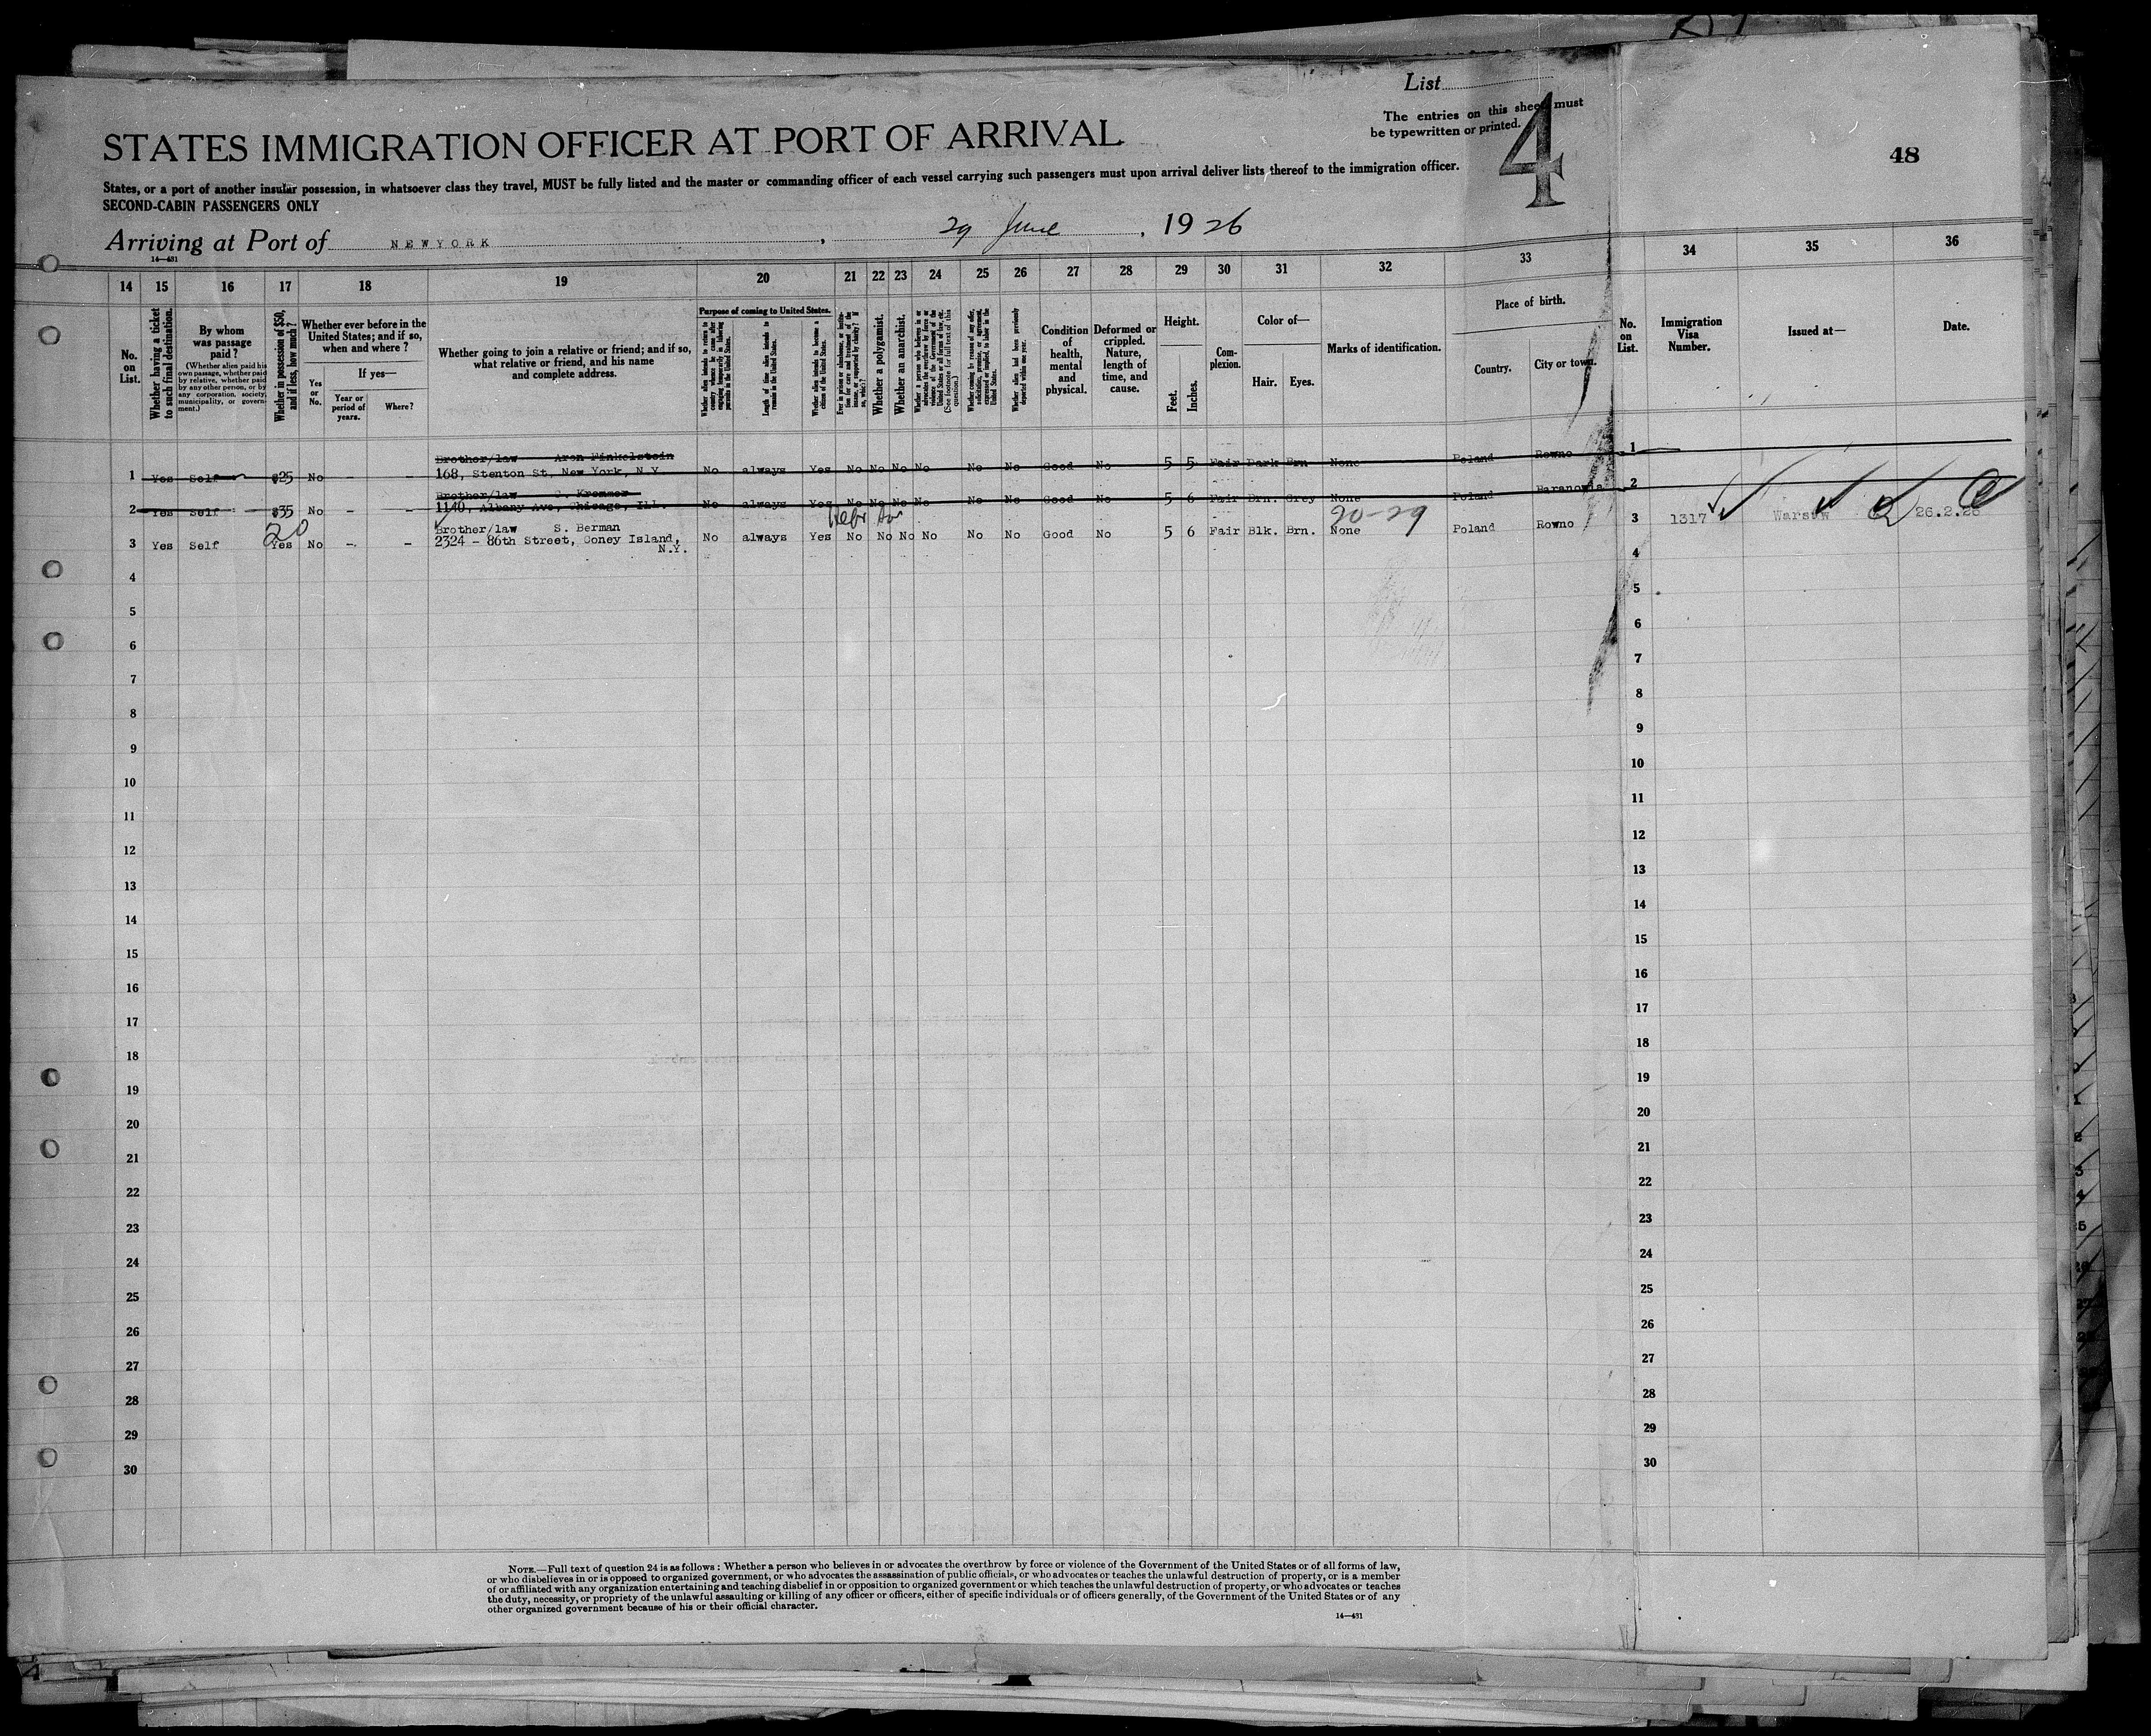 List
The entries on this sheet must
be typewritten or printed.
4
48
STATES IMMIGRATION OFFICER AT PORT OF ARRIVAL
States, or a port of another insular possession, in whatsoever class they travel, MUST be fully listed and the master or commanding officer of each vessel carrying such passengers must upon arrival deliver lists thereof to the immigration officer.
SECOND-CABIN PASSENGERS ONLY
Arriving at Port of NEWYORK, 29 June, 1926
14—431
14 15 16 17 18 19 20 21 22 23 24 25 26 27 28 29 30 31 32 33 34 35 36
No. on List.
Whether having a ticket to such final destination.
By whom was passage paid?
(Whether alien paid his own passage, whether paid by relative, whether paid by any other person, or by any corporation, society, municipality, or government.)
Whether in possession of $50, and if less, how much?
Whether ever before in the United States; and if so, when and where?
Yes or No.
If yes—
Year or period of years.
Where?
Whether going to join a relative or friend; and if so, what relative or friend, and his name and complete address.
Purpose of coming to United States.
Whether alien intends to return to country whence he came after engaging temporarily in laboring pursuits in the United States.
Length of time alien intends to remain in the United States.
Whether alien intends to become a citizen of the United States.
Ever in prison or almshouse, or institution for care and treatment of the insane, or supported by charity? If so, which?
Whether a polygamist.
Whether an anarchist.
Whether a person who believes in or advocates the overthrow by force or violence of the Government of the United States or all forms of law, etc. (See footnote for full text of this question.)
Whether coming by reason of any offer, solicitation, promise, or agreement, expressed or implied, to labor in the United States.
Whether alien had been previously deported within one year.
Condition of health, mental and physical.
Deformed or crippled. Nature, length of time, and cause.
Height.
Feet.
Inches.
Complexion.
Color of—
Hair.
Eyes.
Marks of identification.
Place of birth.
Country.
City or town.
No. on List.
Immigration Visa Number.
Issued at—
Date.
Brother/law Aron Finkelstein
1 Yes Self $25 No - - 168, Stenton St, New York, N.Y. No always Yes No No No No No No Good No 5 5 Fair Dark Brn None Poland Rowno 1
Brother/law Kremmer
2 Yes Self $35 No - - 1140, Albany Ave, Chicago, Ill. No always Yes No No No No No No Good No 5 6 Fair Brn. Grey None Poland 2
20 Hebr 20-29
Brother/law S. Berman
3 Yes Self Yes No - - 2324 - 86th Street, Coney Island, N.Y. No always Yes No No No No No No Good No 5 6 Fair Blk. Brn. None Poland Rowno 3 1317 Warsaw 26.2.26
4 4
5 5
6 6
7 7
8 8
9 9
10 10
11 11
12 12
13 13
14 14
15 15
16 16
17 17
18 18
19 19
20 20
21 21
22 22
23 23
24 24
25 25
26 26
27 27
28 28
29 29
30 30
NOTE.—Full text of question 24 is as follows: Whether a person who believes in or advocates the overthrow by force or violence of the Government of the United States or of all forms of law,
or who disbelieves in or is opposed to organized government, or who advocates the assassination of public officials, or who advocates or teaches the unlawful destruction of property, or is a member
of or affiliated with any organization entertaining and teaching disbelief in or opposition to organized government or which teaches the unlawful destruction of property, or who advocates or teaches
the duty, necessity, or propriety of the unlawful assaulting or killing of any officer or officers, either of specific individuals or of officers generally, of the Government of the United States or of any
other organized government because of his or their official character.
14—431